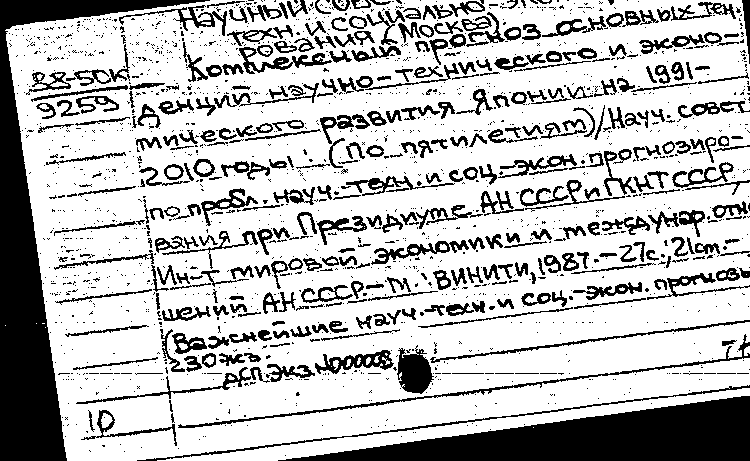 Научный сов
техн. и социально-эко
рования (Москва)
88-5DK
Комплексный прогноз основных тен-
9259
денций научно-технического и эконо-
мического развития Японии на 1991-
2010 годы: (По пятилетиям)/Науч. совет
по пробл. науч.-техн. и соц.-экон. прогнозиро-
вания при Президиуме АН СССР и ГКНТ СССР,
Ин-т мировой экономики и междунар. отно
шений АН СССР.-М.: ВИНИТИ, 1987.-27с.; 21см.-
(Важнейшие науч.-техн. и соц.-экон. прогнозы
230 экз.
ДСП. Экз. N00008
10